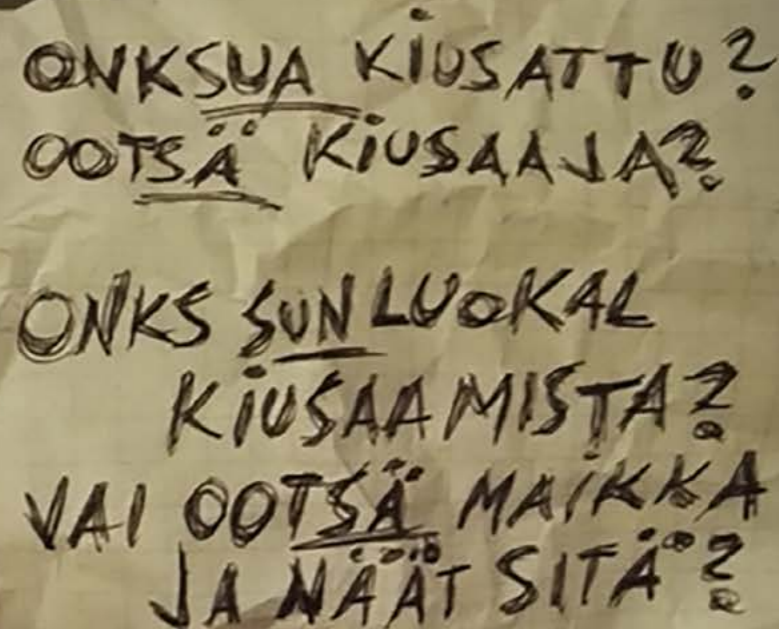 ONKSUA KIUSATTU?
OOTSÄ KIUSAAJA?
ONKS SUN LUOKAL
KIUSAAMISTA?
VAI OOTSÄ MAIKKA
JA NÄÄT SITÄ?